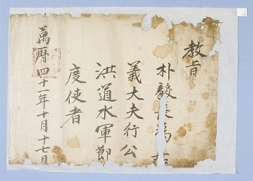 教旨
朴毅長爲嘉
義大夫行公
洪道水軍節
度使者
萬曆四十一年十月十七日